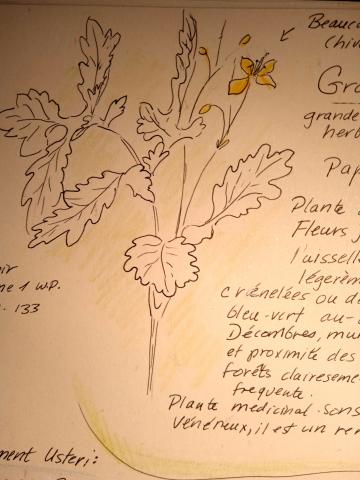 Beauco
Chiv
Gra
grande
herb
Pap
Plante
Fleurs j
l'aissell
légèrem
crénelées ou dé
bleu-vert au-
Décombres, mur
et proximité des
forêts claireseme
frequente.
Plante medicinal. sons
vénéneux, il est un re
ir
ne 1 wp.
. 133
ment Usteri: